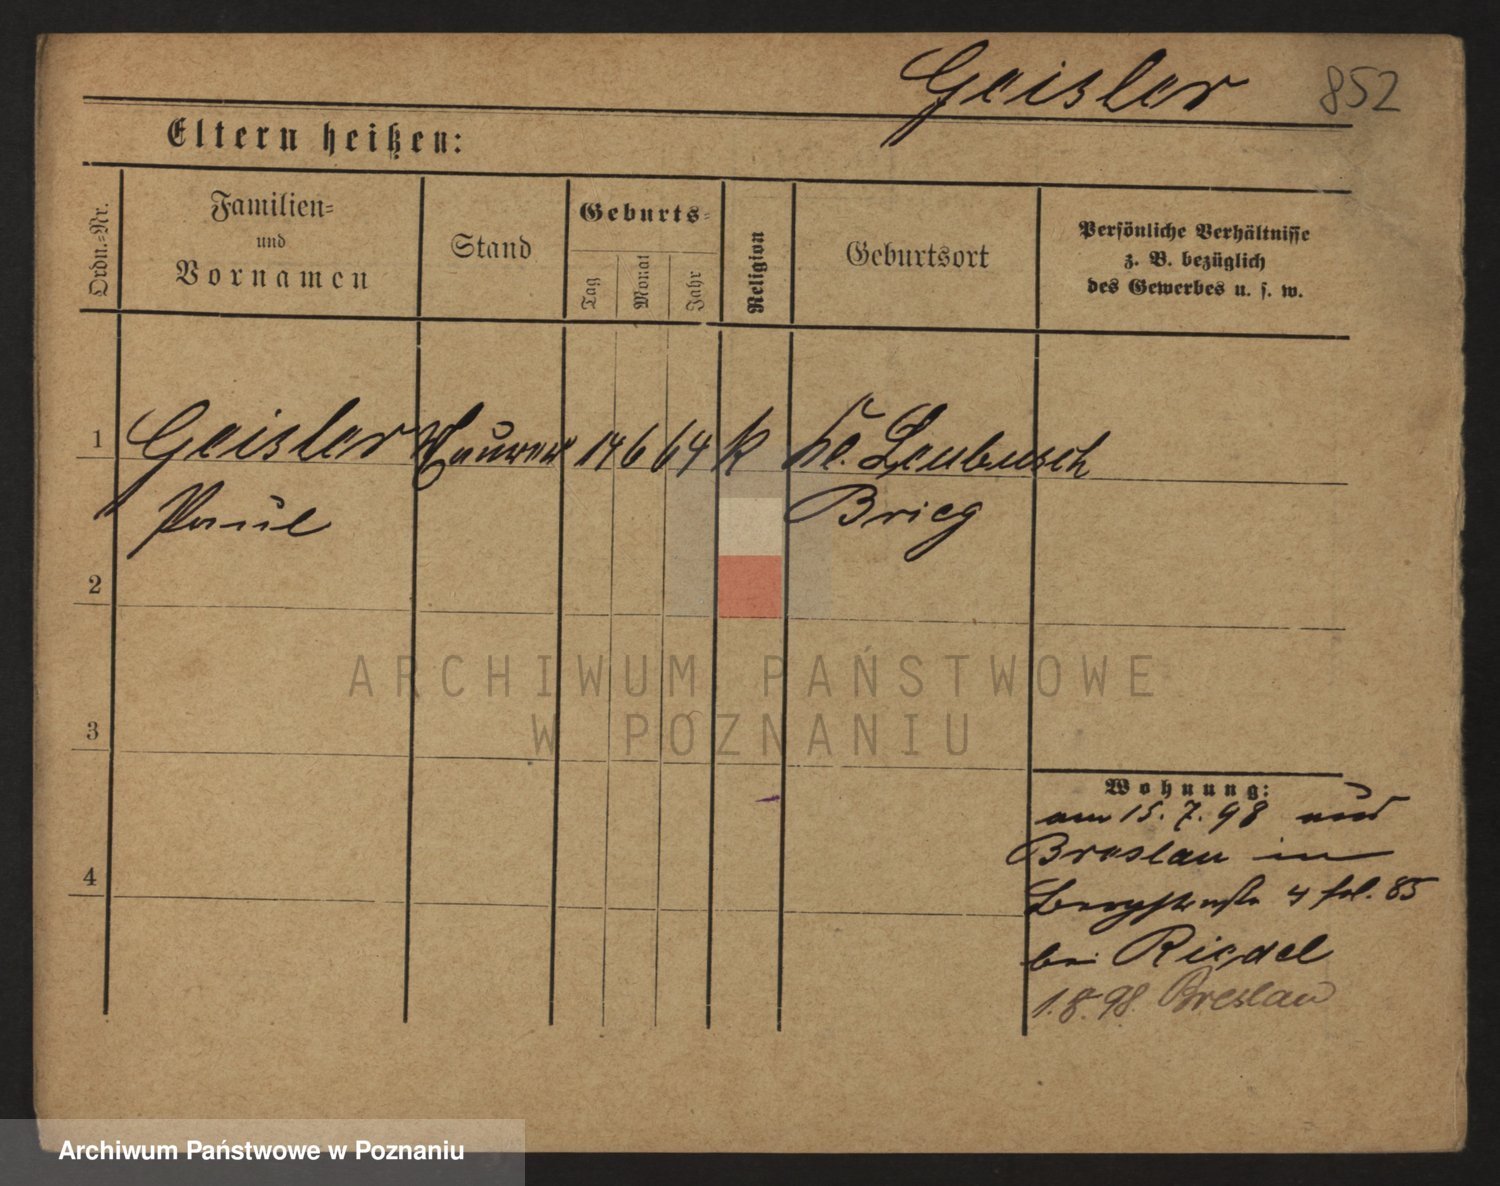 Geisler 852
Eltern heißen:
Ordn.=Nr.
Familien=
und
Vornamen
Stand
Geburts=
Tag
Monat
Jahr
Religion
Geburtsort
Persönliche Verhältnisse
z. B. bezüglich
des Gewerbes u. s. w.
1 Geisler Maurer 14 6 64 k Kl. Leubusch
Paul Brieg
2
3
4
ARCHIWUM PAŃSTWOWE
W POZNANIU
Wohnung:
am 15. 7. 98 aus
Breslau in
Bergstraße 4 fol. 85
bei Riedel
1.8.98. Breslau
Archiwum Państwowe w Poznaniu